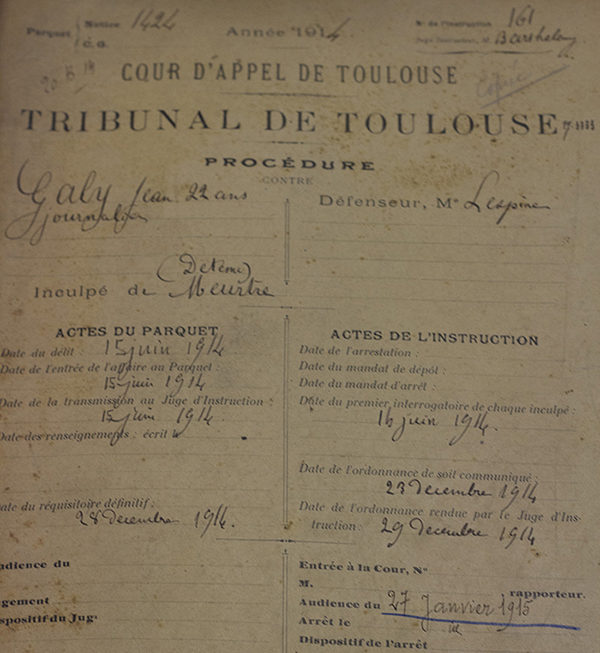 Parquet Notice 1424 C.G.
Année 1914
N° de l'Instruction : 161
Juge Instructeur, M.
COUR D'APPEL DE TOULOUSE
TRIBUNAL DE TOULOUSE
PROCÉDURE
CONTRE
Galy Jean 22 ans
journalier
Défenseur, Me Lespine
(Détenu)
Inculpé de Meurtre
ACTES DU PARQUET
Date du délit : 15 juin 1914
Date de l'entrée de l'affaire au Parquet :
15 juin 1914
Date de la transmission au Juge d'Instruction :
15 juin 1914
Date des renseignements : écrit le
Date du réquisitoire définitif :
28 décembre 1914.
ACTES DE L'INSTRUCTION
Date de l'arrestation :
Date du mandat de dépôt :
Date du mandat d'arrêt :
Date du premier interrogatoire de chaque inculpé :
16 juin 1914.
Date de l'ordonnance de soit communiqué :
23 décembre 1914
Date de l'ordonnance rendue par le Juge d'Ins-
truction : 29 décembre 1914
udience du
gement
spositif du Jug
Entrée à la Cour, N°
M. rapporteur.
Audience du 27 Janvier 1915
Arrêt le
Dispositif de l'arrêt